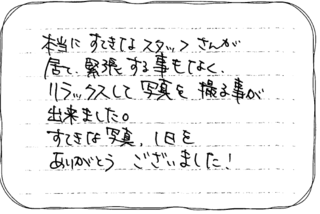 本当にすてきなスタッフさんが
居て、緊張する事もなく、
リラックスして写真を撮る事が
出来ました。
すてきな写真、1日を
ありがとうございました！